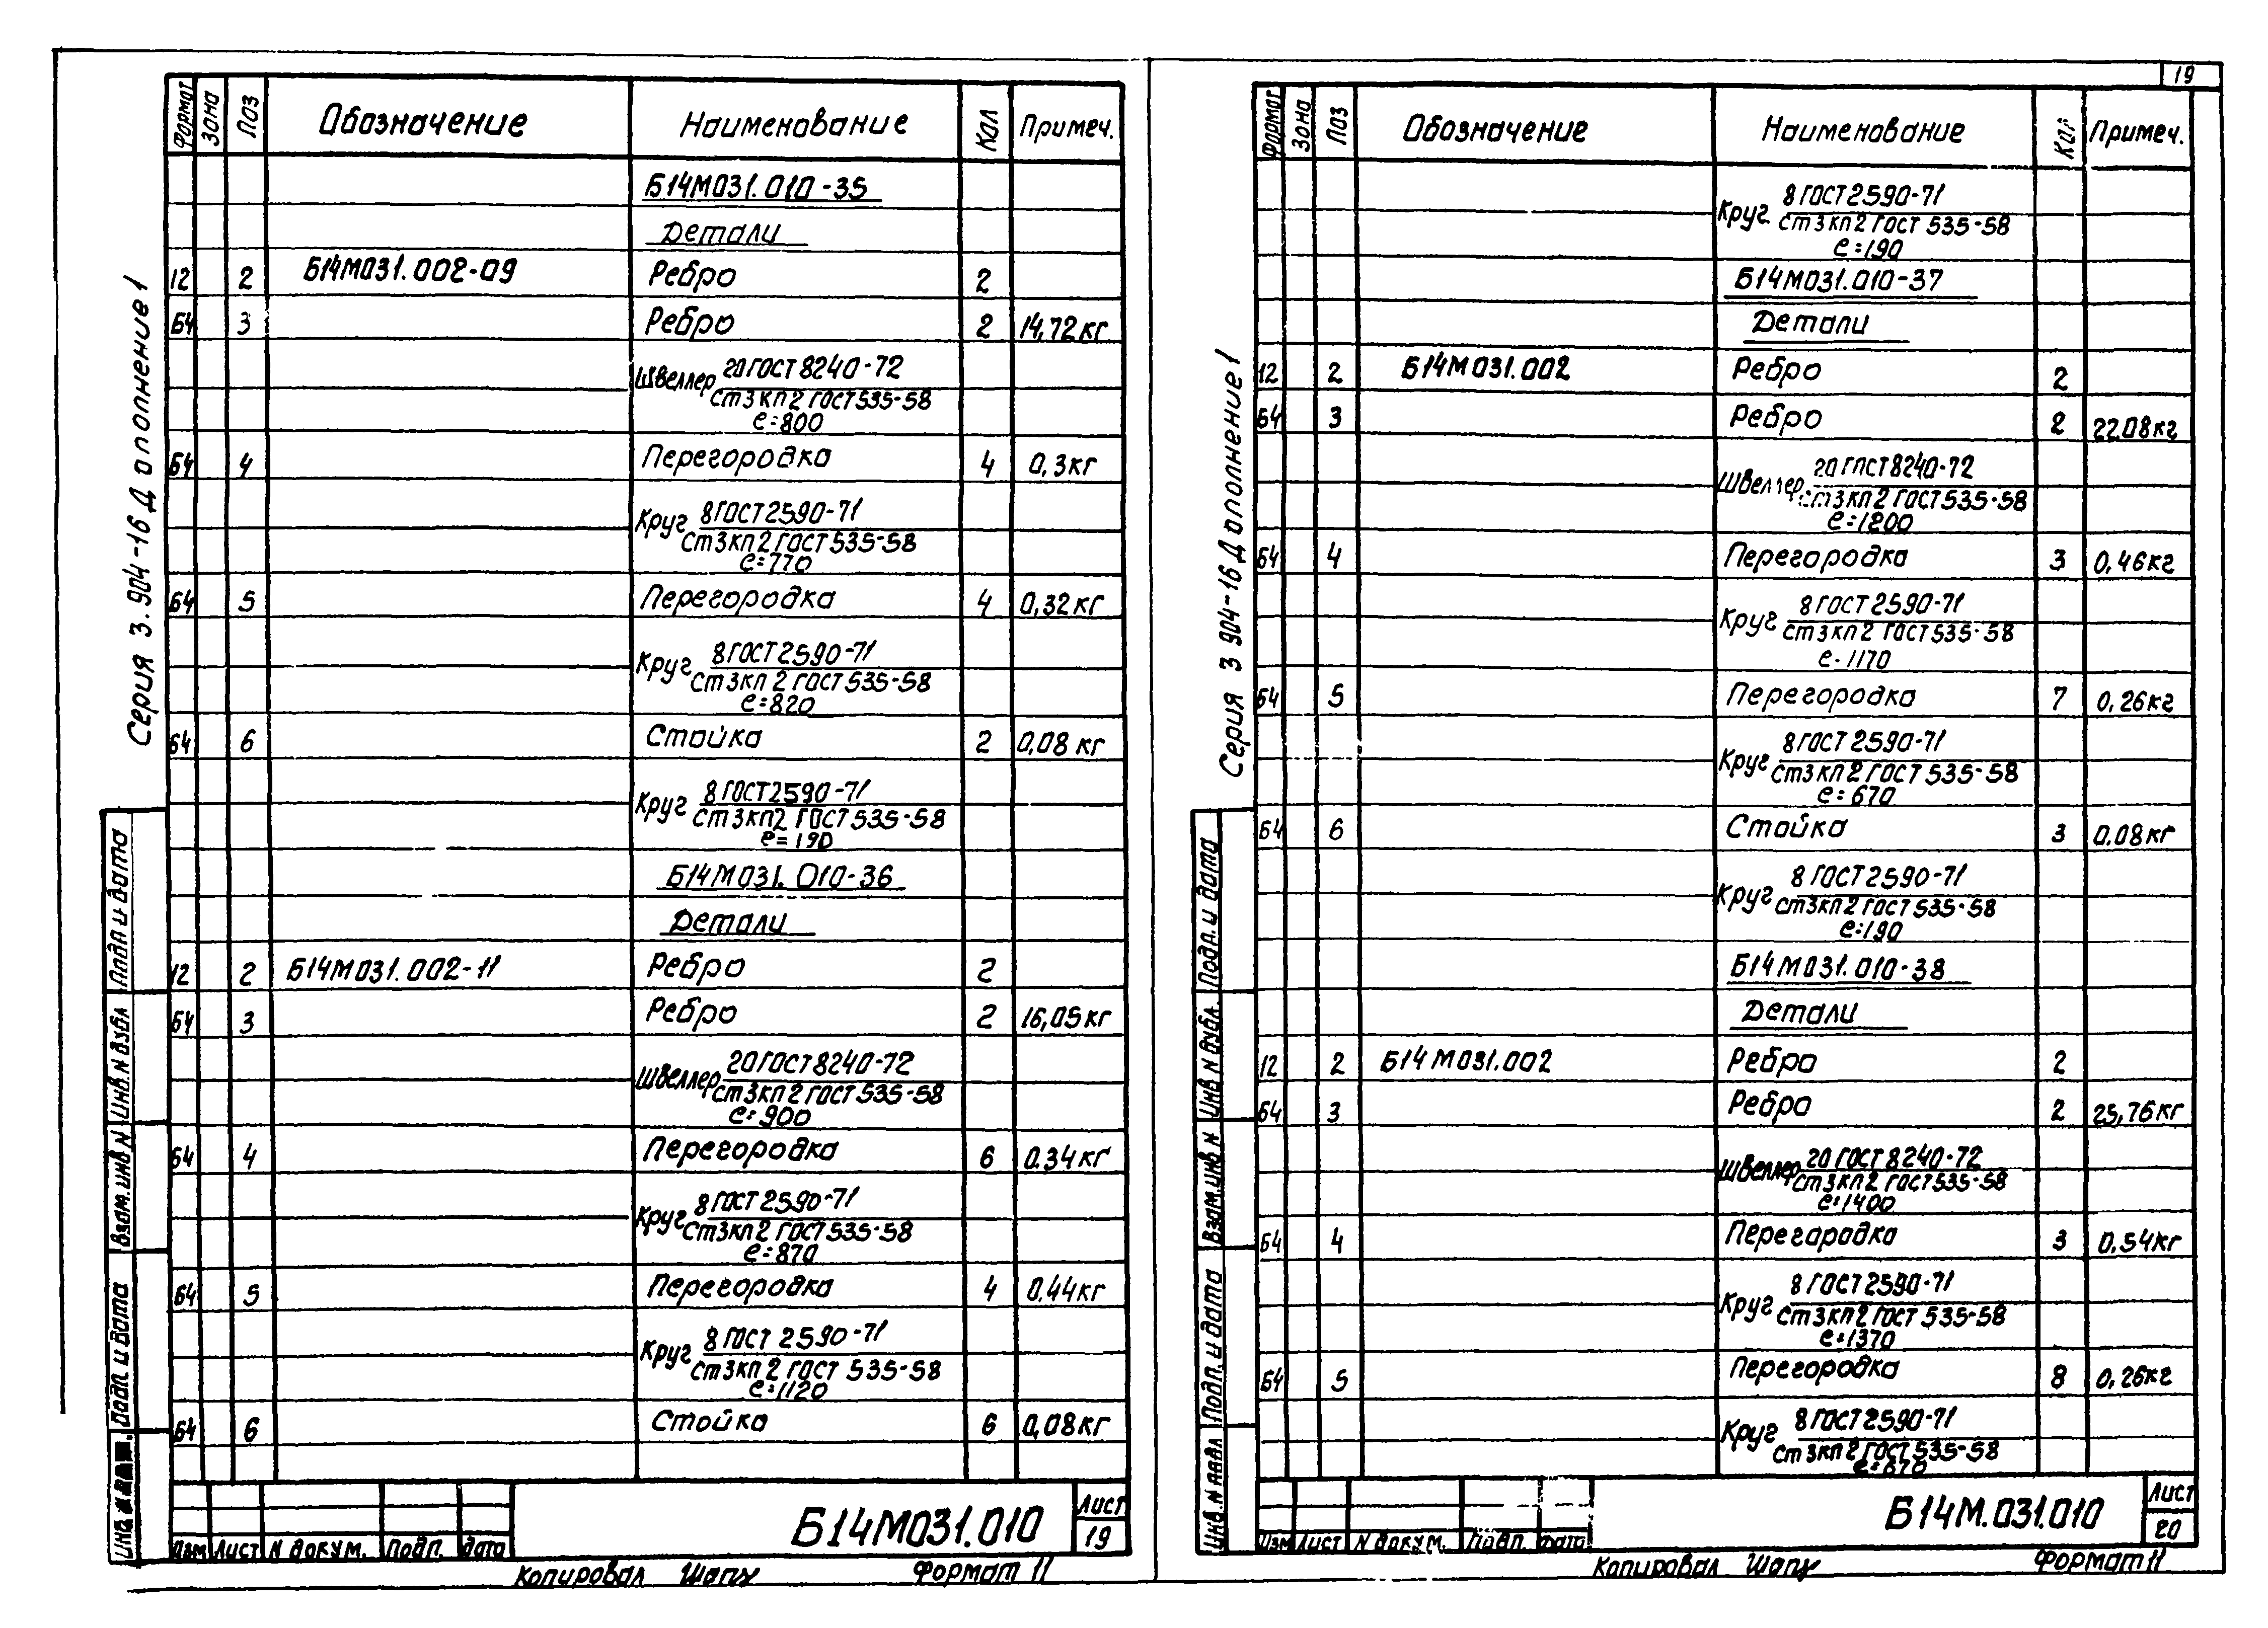 19
Серия 3.904-16 Дополнение 1
Формат Зона Поз Обозначение Наименование Кол Примеч.
Б14М031.010-35
Детали
12 2 Б14М031.002-09 Ребро 2
Б4 3 Ребро 2 14,72кг
Швеллер 20 ГОСТ 8240-72
Ст3кп2 ГОСТ 535-58
e=800
Б4 4 Перегородка 4 0,3кг
Круг 8 ГОСТ 2590-71
Ст3кп2 ГОСТ 535-58
e=770
Б4 5 Перегородка 4 0,32кг
Круг 8 ГОСТ 2590-71
Ст3кп2 ГОСТ 535-58
e=820
Б4 6 Стойка 2 0,08 кг
Круг 8 ГОСТ 2590-71
Ст3кп2 ГОСТ 535-58
e=190
Б14М031.010-36
Детали
12 2 Б14М031.002-11 Ребро 2
Б4 3 Ребро 2 16,05кг
Швеллер 20 ГОСТ 8240-72
Ст3кп2 ГОСТ 535-58
e=900
Б4 4 Перегородка 6 0.34кг
Круг 8 ГОСТ 2590-71
Ст3кп2 ГОСТ 535-58
e=870
Б4 5 Перегородка 4 0,44кг
Круг 8 ГОСТ 2590-71
Ст3кп2 ГОСТ 535-58
e=1120
Б4 6 Стойка 6 0,08кг
Подп и дата
Инв. N дубл
Взам. инв N
Подп. и дата
Инв.
Изм Лист N докум. Подп. Дата
Б14М031.010
Лист
19
Копировал Формат 11
Серия 3 904-16 Дополнение 1
Формат Зона Поз Обозначение Наименование Кол Примеч.
Круг 8 ГОСТ 2590-71
Ст3кп2 ГОСТ 535-58
e=190
Б14М031.010-37
Детали
12 2 Б14М031.002 Ребро 2
Б4 3 Ребро 2 22,08кг
Швеллер 20 ГОСТ 8240-72
Ст3кп2 ГОСТ 535-58
e=1200
Б4 4 Перегородка 3 0,46кг
Круг 8 ГОСТ 2590-71
Ст3кп2 ГОСТ 535-58
e=1170
Б4 5 Перегородка 7 0,26кг
Круг 8 ГОСТ 2590-71
Ст3кп2 ГОСТ 535-58
e=670
Б4 6 Стойка 3 0.08кг
Круг 8 ГОСТ 2590-71
Ст3кп2 ГОСТ 535-58
e=190
Б14М031.010-38
Детали
12 2 Б14М031.002 Ребро 2
Б4 3 Ребро 2 25,76кг
Швеллер 20 ГОСТ 8240-72
Ст3кп2 ГОСТ 535-58
e=1400
Б4 4 Перегородка 3 0,54кг
Круг 8 ГОСТ 2590-71
Ст3кп2 ГОСТ 535-58
e=1370
Б4 5 Перегородка 8 0,26кг
Круг 8 ГОСТ 2590-71
Ст3кп2 ГОСТ 535-58
e=670
Подп. и дата
Инв N дубл.
Взам. инв N
Подп. и дата
Инв. N подл
Изм Лист N докум. Подп. Дата
Б14М.031.010
Лист
20
Копировал Формат 11